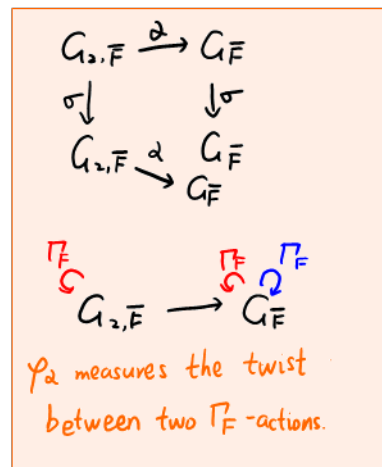 G₂,F̄ —α→ G_F̄
σ↓ ↓σ
G₂,F̄ α G_F̄
G_F̄
Γ_F Γ_F Γ_F
G₂,F̄ → G_F̄
φ₂ measures the twist
between two Γ_F-actions.